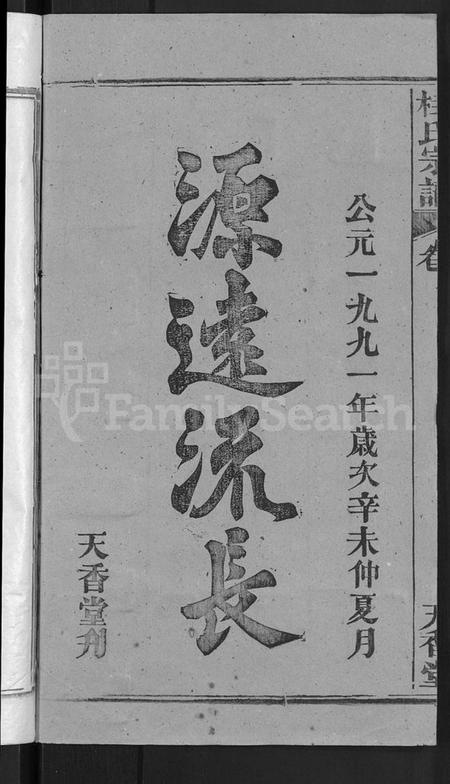 桂氏宗譜
卷
天香堂
公元一九九一年歲次辛未仲夏月
源遠流長
天香堂刋
FamilySearch